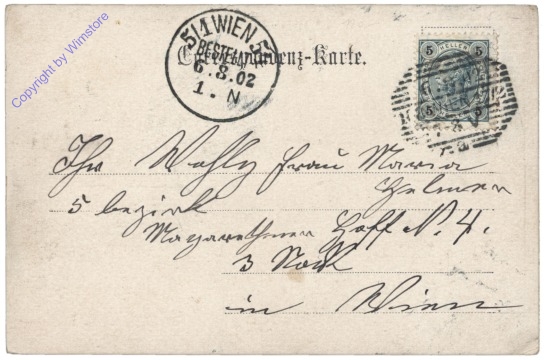 Copyright by Wimstore
5/1 WIEN 5
BESTELLT
6.8.02
1. N
Correspondenz-Karte.
5 HELLER 5
5 5
Ihr Wohlg Frau Maria
5 bezirk
Hoff N. 4.
3 Stock
in Wien